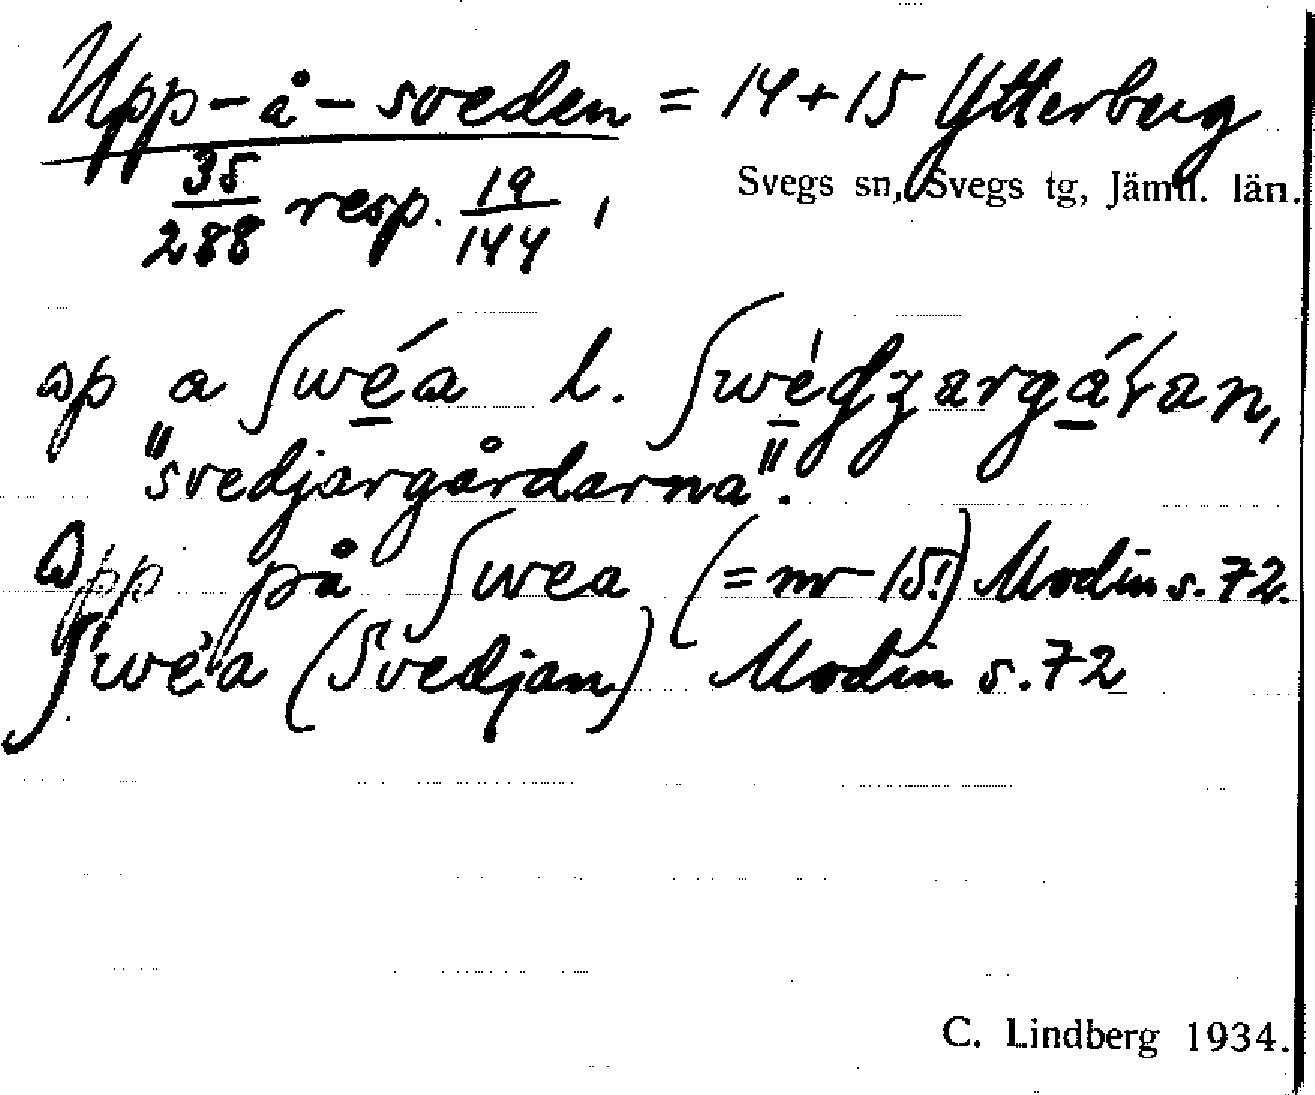 Upp-å-sveden = 14+15 Ytterberg
Svegs sn, Svegs tg, Jämtl. län.
35/288 resp. 19/144,
ap a ʃwéa l. ʃwéʤzargáɽan,
"svedjargårdarna".
Opp på ʃwea (= nr 15!) Modin s. 72.
ʃwéa (Svedjan) Modin s. 72
C. Lindberg 1934.